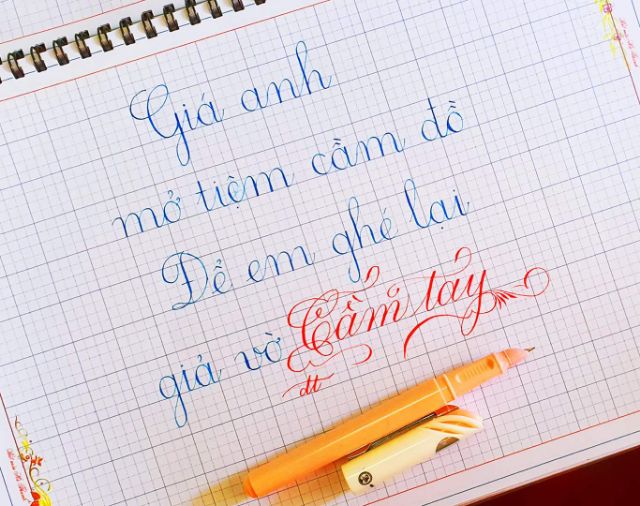 Giá anh
mở tiệm cầm đồ
Để em ghé lại
giả vờ Cầm tay
dt